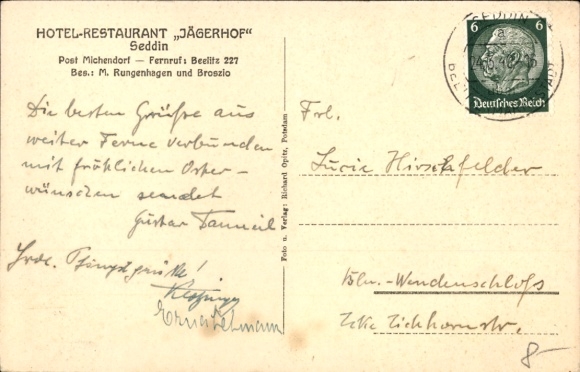 HOTEL-RESTAURANT „JÄGERHOF“
Seddin
Post Michendorf — Fernruf: Beelitz 227
Bes.: M. Rungenhagen und Broszio
Die besten Grüße aus
weiter Ferne verbunden
mit fröhlichen Oster-
wünschen sendet
Gustav
Erna Lehmann
Foto u. Verlag: Richard Opitz, Potsdam
SEDDIN
6 6
Deutsches Reich
Frl.
Lucie Hirschfelder
Bln.-Wendenschloß
Ecke Eichhornstr.
8-